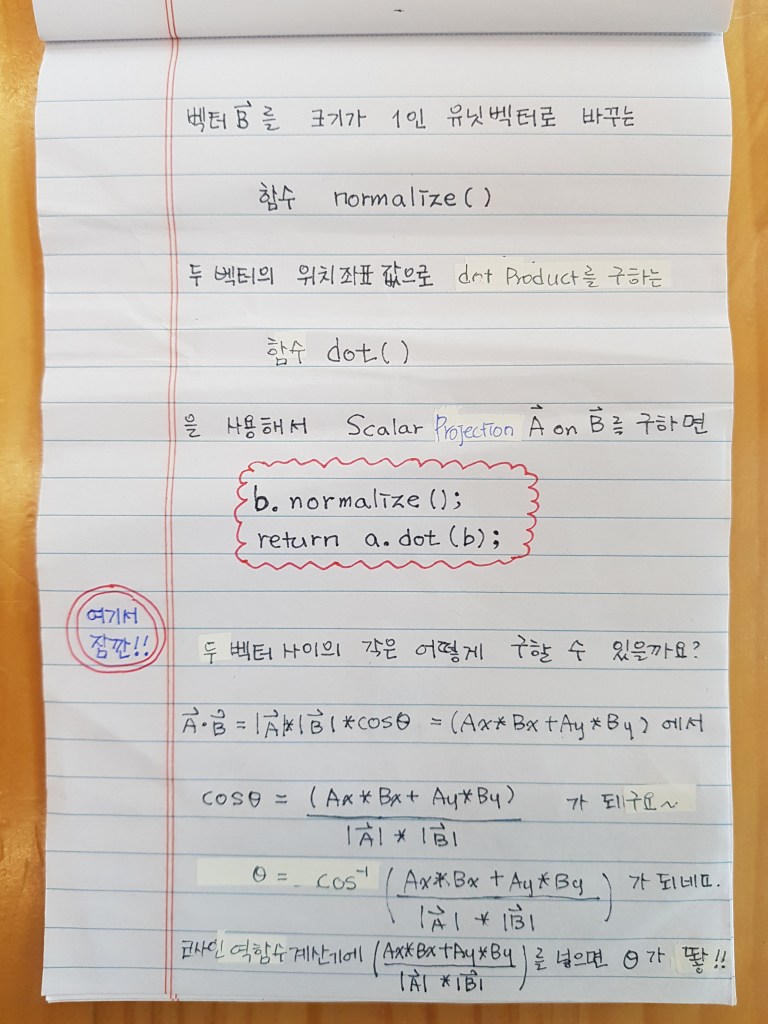 벡터 B를 크기가 1인 유닛벡터로 바꾸는
함수 normalize()
두 벡터의 위치좌표 값으로 dot Product를 구하는
함수 dot()
을 사용해서 Scalar Projection A⃗ on B⃗를 구하면
b.normalize();
return a.dot(b);
여기서
잠깐!!
두 벡터 사이의 각은 어떻게 구할 수 있을까요?
A⃗·B⃗ = |A⃗|*|B⃗|*cosθ = (Ax*Bx+Ay*By) 에서
cosθ = (Ax*Bx+Ay*By) / |A⃗| * |B⃗| 가 되구요~
θ = cos⁻¹ ( Ax*Bx+Ay*By / |A⃗| * |B⃗| ) 가 되네요.
코사인 역함수계산기에 ( Ax*Bx+Ay*By / |A⃗| * |B⃗| ) 를 넣으면 θ가 뙇!!